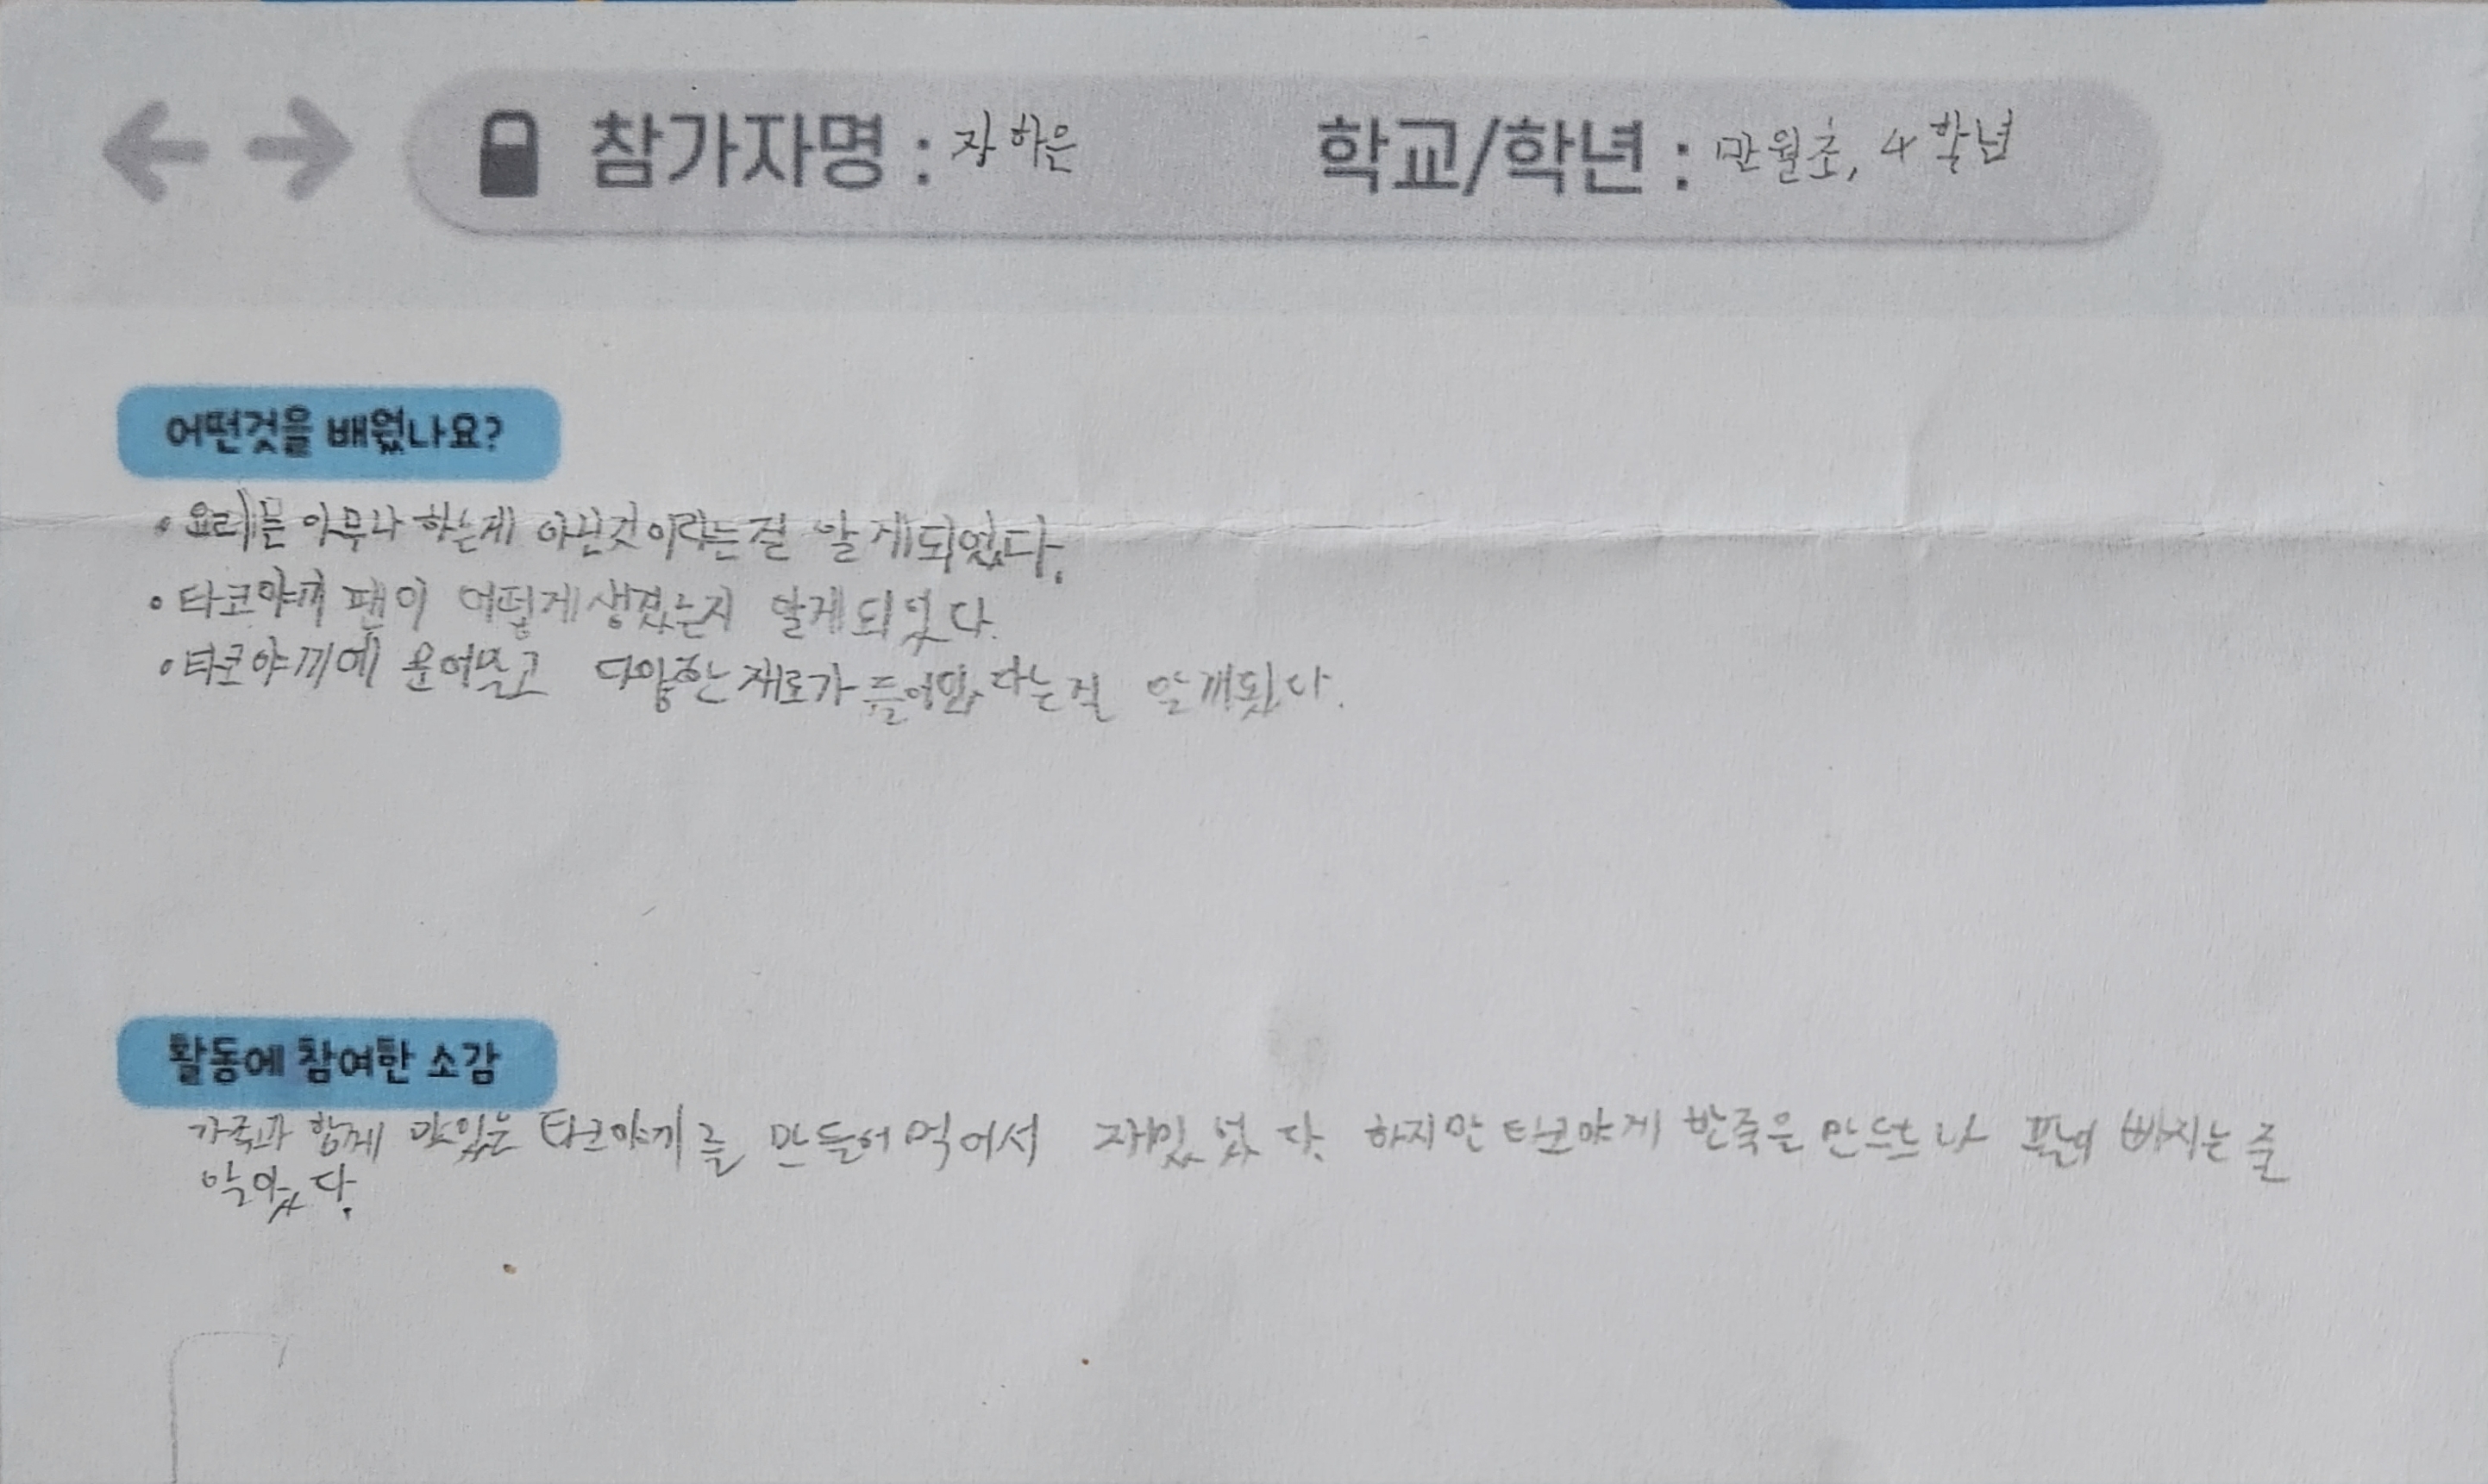 참가자명 : 장하은 학교/학년 : 만월초, 4학년
어떤것을 배웠나요?
• 요리를 아무나 하는게 아닌것이라는걸 알게되었다.
• 타코야끼 팬이 어떻게생겼는지 알게되었다.
• 타코야끼에 문어말고 다양한 재료가 들어있다는걸 알게됬다.
활동에 참여한 소감
가족과 함께 맛있는 타코야끼를 만들어먹어서 재밌었다. 하지만 타코야게 반죽을 만드느나 팔이 빠지는줄
알았다.